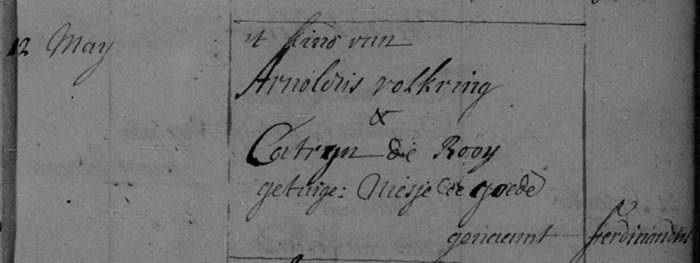 12 May
't kind van
Arnoldus volkring
&
Catryn de Rooy
getuige: Niesje de goede
genaamt Ferdinandus